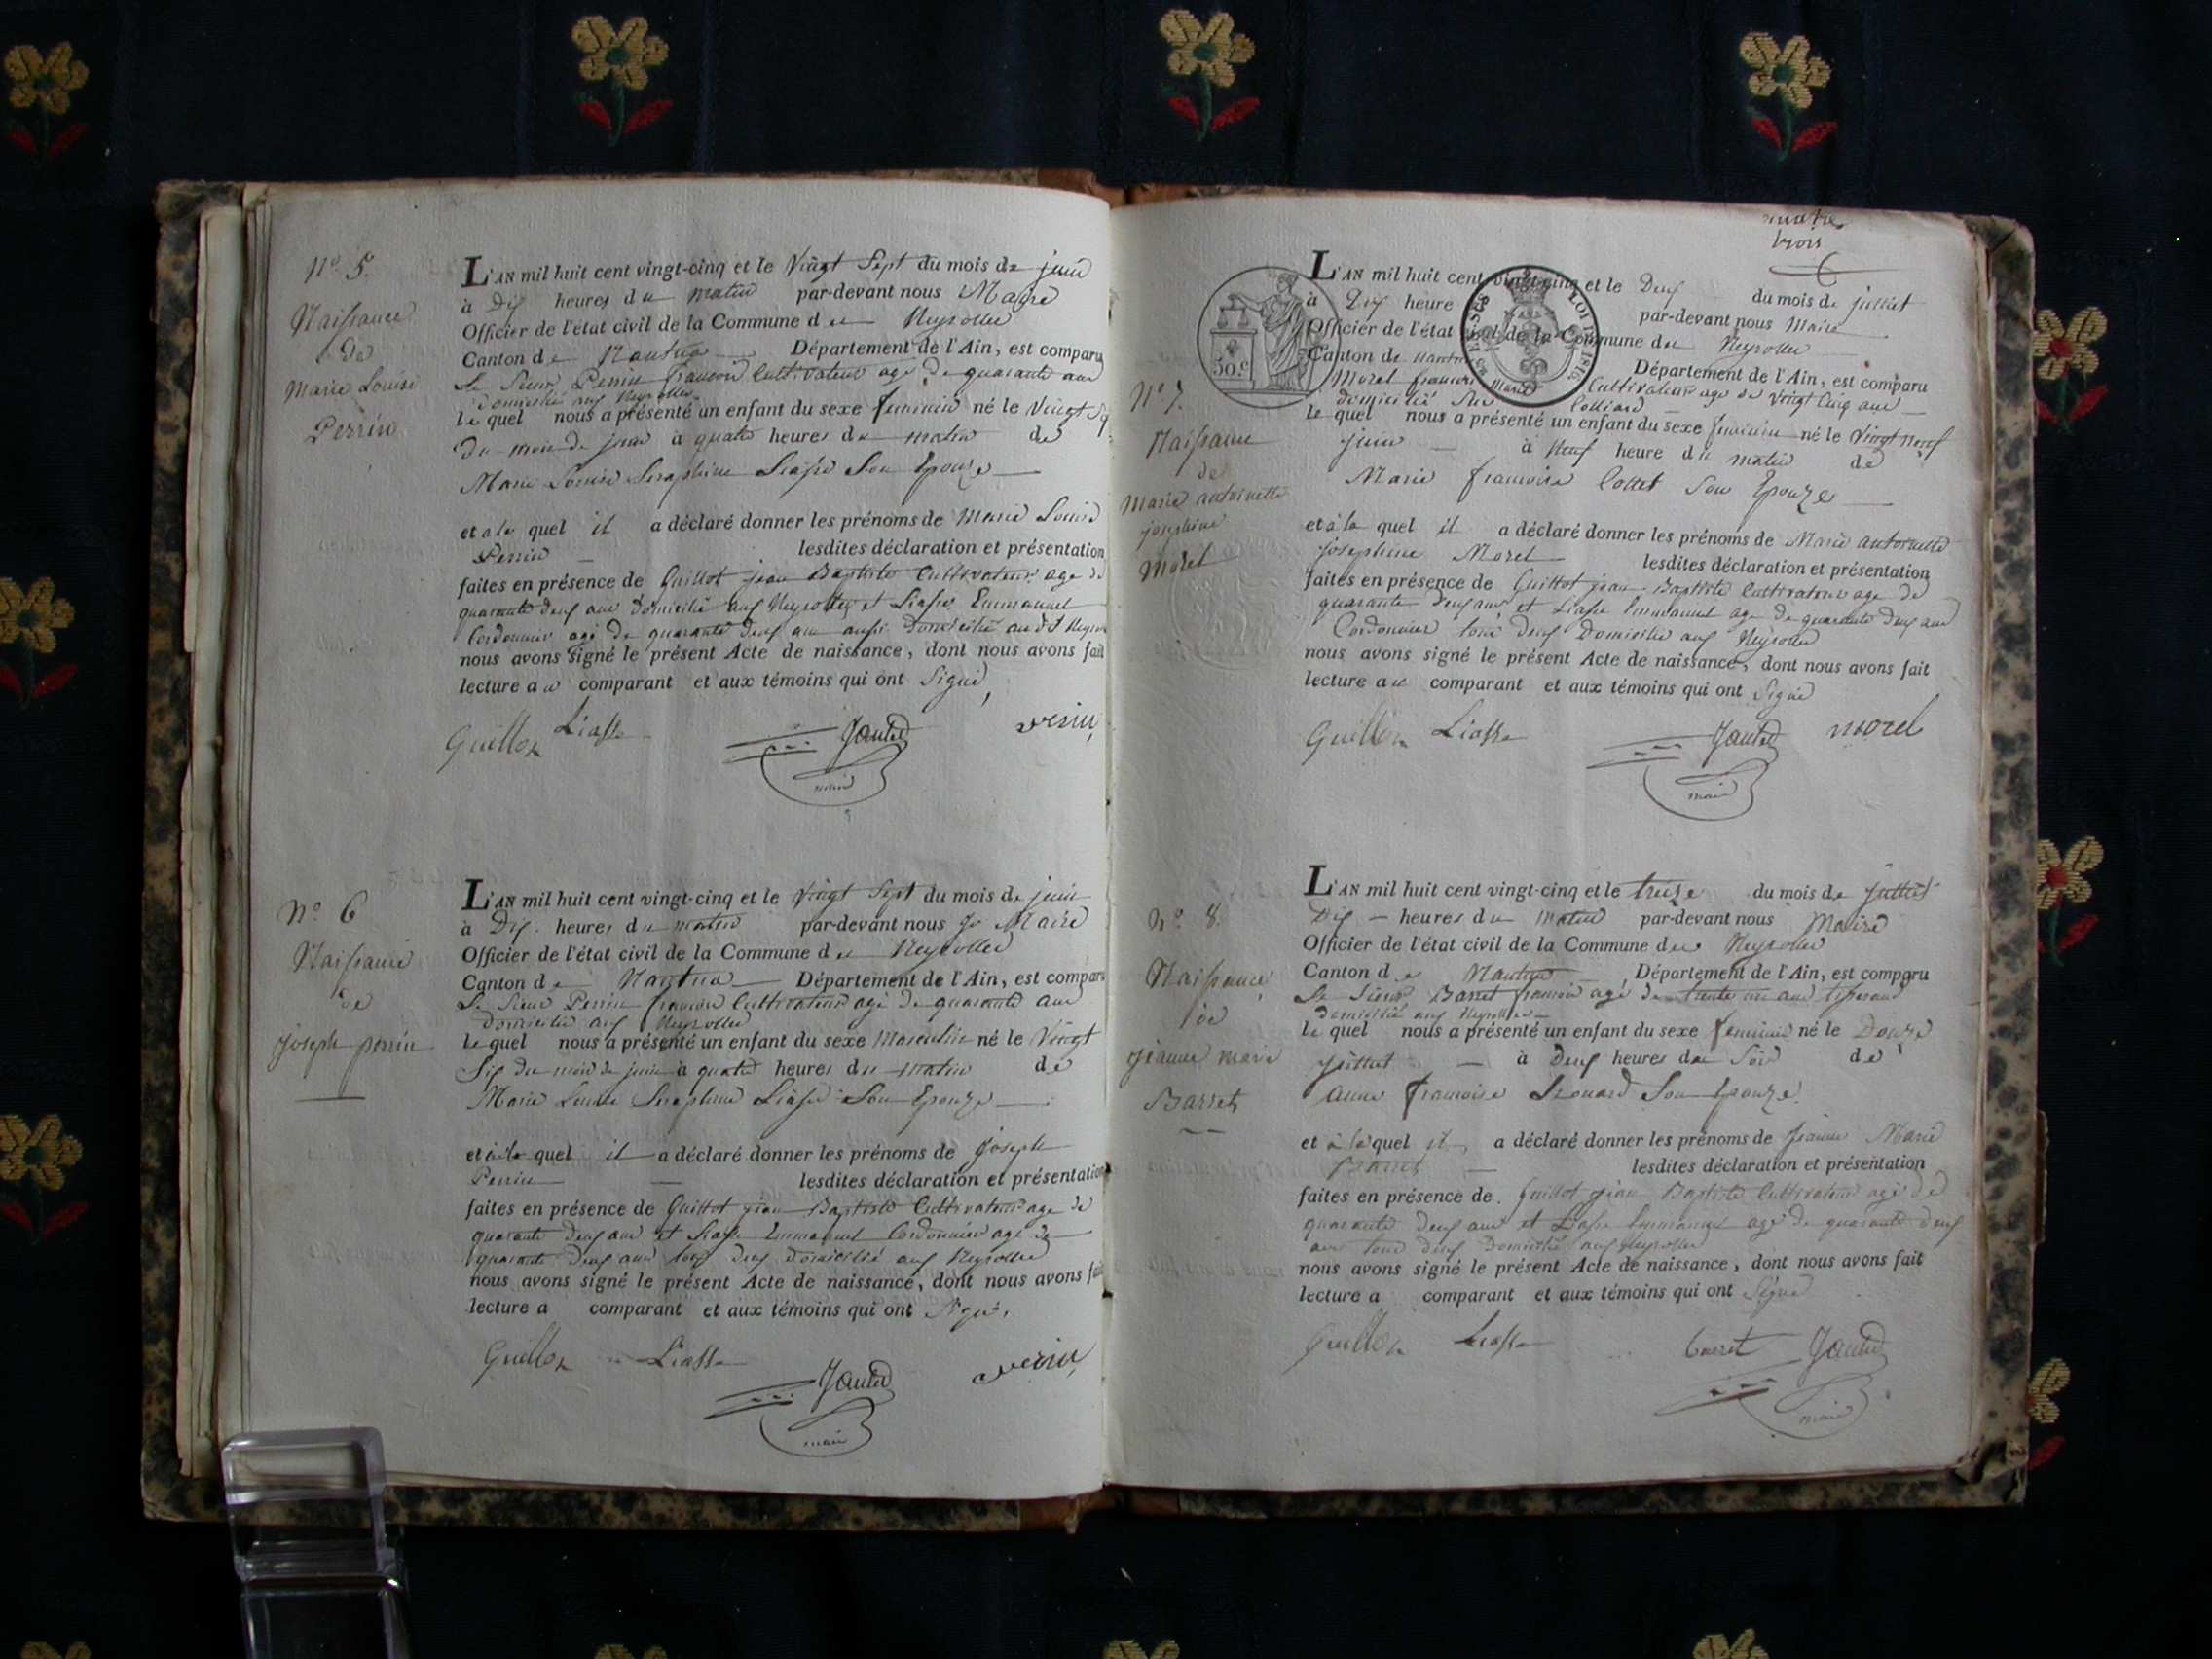 N.º 5.
Naissance
de
Marie Louise
Perrin
L'AN mil huit cent vingt-cinq et le Vingt Sept du mois de juin
à Dix heures du matin par-devant nous Maire
Officier de l'état civil de la Commune des Neyrolles
Canton de Nantua Département de l'Ain, est comparu
Le Sieur Perrin françois Cultivateur agé de quarante ans
domicilié aux Neyrolles
le quel nous a présenté un enfant du sexe feminin né le Vingt
du mois de juin à quatre heures du matin de
Marie Louise Seraphine Liasse Son Epouze
et à la quel il a déclaré donner les prénoms de Marie Louise
Perrin lesdites déclaration et présentation
faites en présence de Guillot jean Baptiste Cultivateur agé de
quarante deux ans Domicilié aux Neyrolles et Liasse Emmanuel
Cordonnier agé de quarante deux ans aussi Domicilié
nous avons signé le présent Acte de naissance, dont nous avons fait
lecture au comparant et aux témoins qui ont Signé,
Guillot Liasse Jantet perrin
maire
Nº 6
Naissance
de
joseph perrin
L'AN mil huit cent vingt-cinq et le Vingt Sept du mois de juin
à Dix heures du matin par-devant nous Maire
Officier de l'état civil de la Commune des Neyrolles
Canton de Nantua Département de l'Ain, est comparu
Le Sieur Perrin françois Cultivateur agé de quarante ans
domicilié aux Neyrolles
le quel nous a présenté un enfant du sexe Masculin né le Vingt
Six du mois de juin à quatre heures du matin de
Marie Louise Seraphine Liasse Son Epouze
et à la quel il a déclaré donner les prénoms de Joseph
Perrin lesdites déclaration et présentation
faites en présence de Guillot jean Baptiste Cultivateur agé de
quarante deux ans et Liasse Emmanuel Cordonnier agé de
quarante deux ans tous deux domicilié aux Neyrolles
nous avons signé le présent Acte de naissance, dont nous avons fait
lecture a comparant et aux témoins qui ont Signé,
Guillot Liasse Jantet perrin
maire
trois
50.c
LOI DE 1816
Nº 7.
Naissance
de
Marie antoinette
josephine
Morel
L'AN mil huit cent vingt-cinq et le Deux du mois de juillet
à Dix heure par-devant nous Maire
Officier de l'état civil de la Commune des Neyrolles
Canton de Nantua Département de l'Ain, est comparu
Morel francois Marie Cultivateur agé de Vingt Cinq ans
domicilié Sur Colliard
le quel nous a présenté un enfant du sexe feminin né le Vingt neuf
juin à Neuf heure du matin de
Marie francoise Collet Son Epouze
et à la quel il a déclaré donner les prénoms de Marie antoinette
josephine Morel lesdites déclaration et présentation
faites en présence de Guillot jean Baptiste Cultivateur agé de
quarante deux ans et Liasse Emmanuel agé de quarante deux ans
Cordonnier tous deux Domicilié aux Neyrolles
nous avons signé le présent Acte de naissance, dont nous avons fait
lecture au comparant et aux témoins qui ont Signé
Guillot Liasse Jantet morel
maire
Nº 8.
Naissance
de
jeanne marie
Barret
L'AN mil huit cent vingt-cinq et le treize du mois de juillet
Dix heures du matin par-devant nous Maire
Officier de l'état civil de la Commune des Neyrolles
Canton de Nantua Département de l'Ain, est comparu
Le Sieur Barret françois agé de trente un ans tisserand
domicilié aux Neyrolles
le quel nous a présenté un enfant du sexe feminin né le Douze
juillet à Deux heures du Soir de
Anne francoise Son Epouze
et à la quel il a déclaré donner les prénoms de Jeanne Marie
Barret lesdites déclaration et présentation
faites en présence de Guillot jean Baptiste Cultivateur agé de
quarante deux ans et Liasse Emmanuel agé de quarante deux
ans tous deux Domicilié aux Neyrolles
nous avons signé le présent Acte de naissance, dont nous avons fait
lecture a comparant et aux témoins qui ont Signé
Guillot Liasse barret Jantet
maire